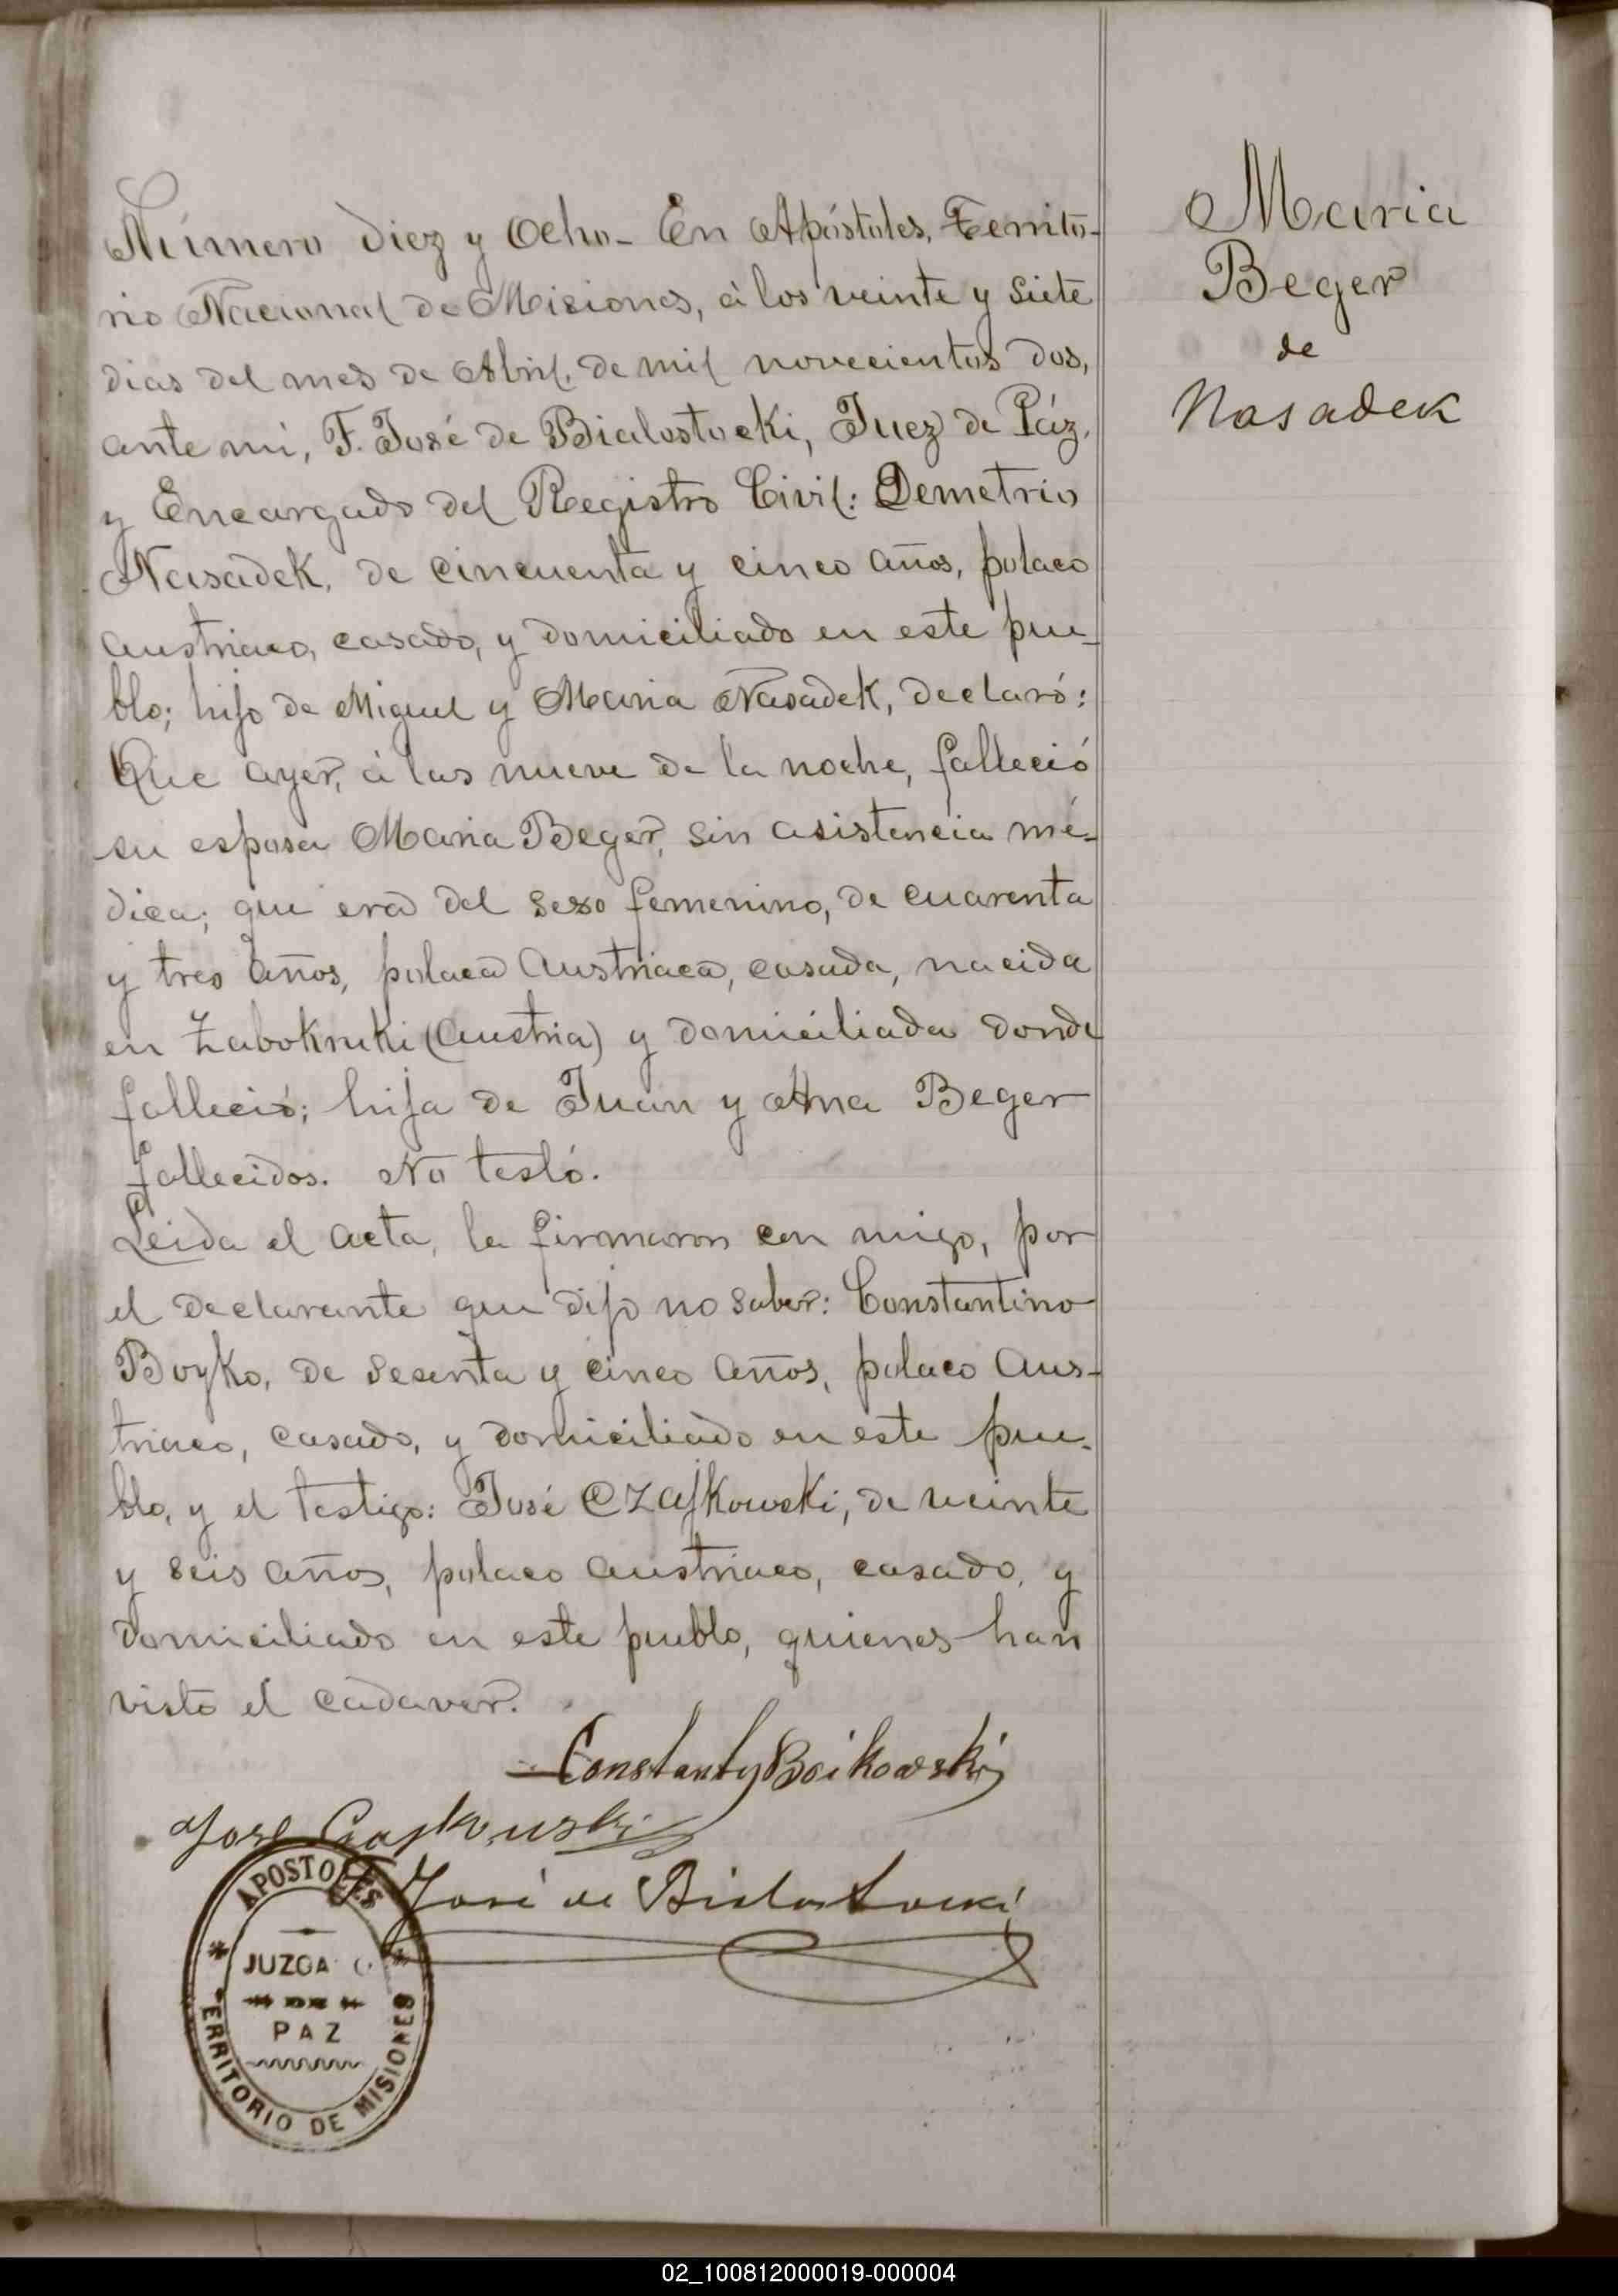 Número diez y ocho- En Apóstoles, Territo-
rio Nacional de Misiones, á los veinte y siete
dias del mes de Abril, de mil novecientos dos,
ante mi, F. José de Bialostocki, Juez de Páz,
y Encargado del Registro Civil: Demetrio
Nasadek, de cincuenta y cinco años, polaco
austriaco, casado, y domiciliado en este pue-
blo; hijo de Miguel y Maria Nasadek, declaró:
Que ayer, á las nueve de la noche, falleció
su esposa Maria Beger, sin asistencia mé-
dica; que era del sexo femenino, de cuarenta
y tres años, polaca austriaca, casada, nacida
en Zabokruki (Austria) y domiciliada donde
falleció; hija de Juan y Ana Beger
fallecidos. No testó.
Leida el acta, la firmaron con migo, por
el declarante que dijo no saber: Constantino
Boyko, de sesenta y cinco años, polaco aus-
triaco, casado, y domiciliado en este pue-
blo, y el testigo: José Czajkowski, de veinte
y seis años, polaco austriaco, casado, y
domiciliado en este pueblo, quienes han
visto el cadaver.
Constanty Boikowski
José Czajkowski
F. José de Bialostocki
APOSTOLES
JUZGADO
DE
PAZ
TERRITORIO DE MISIONES
Maria
Beger
de
Nasadek
02_100812000019-000004